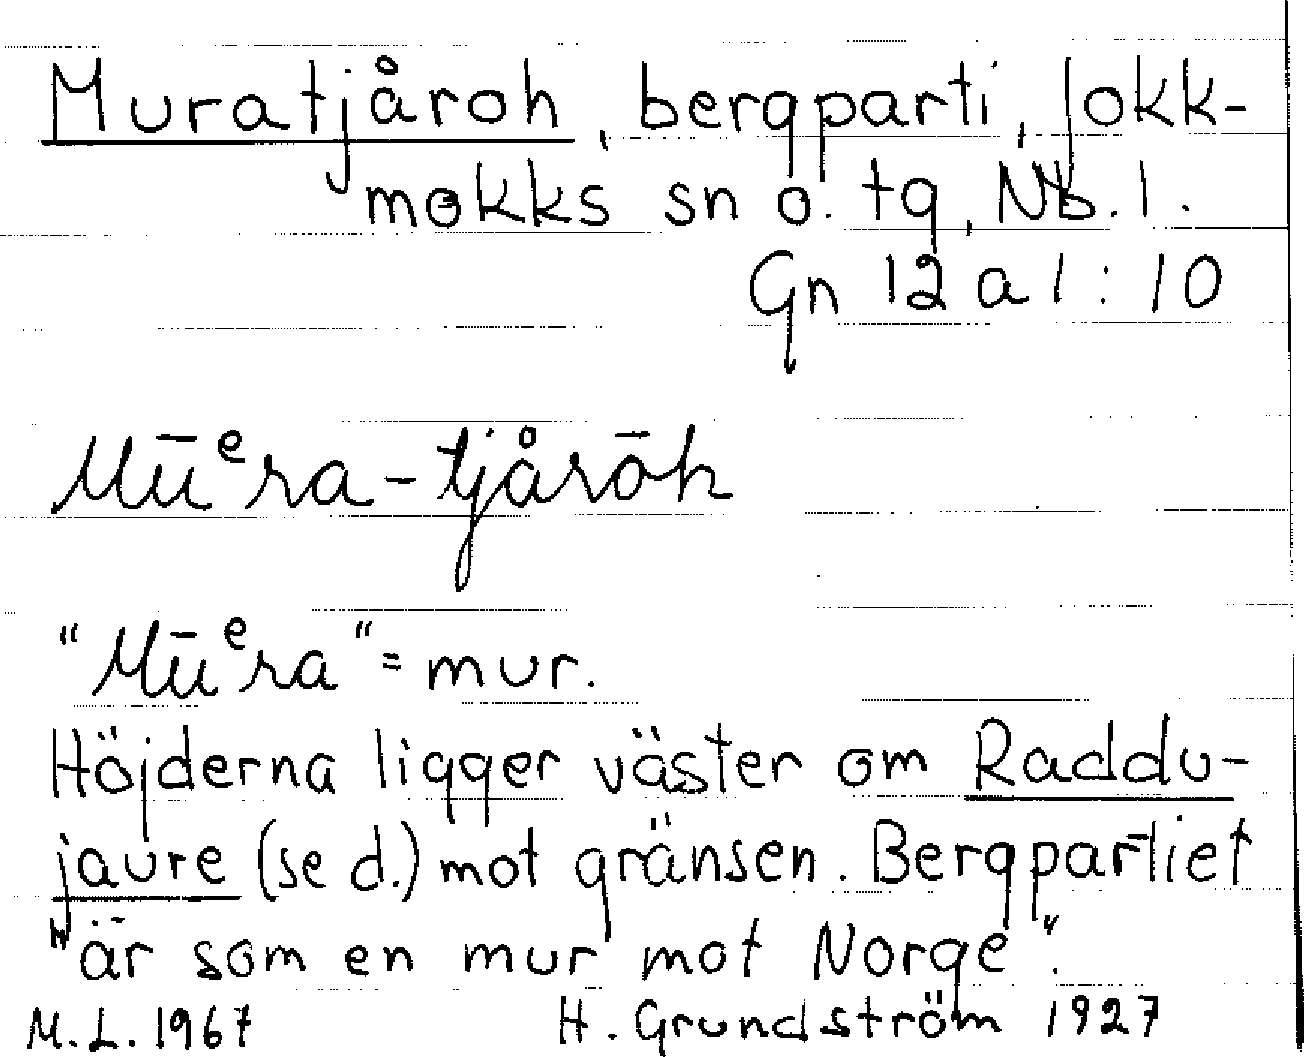 Muratjåroh, bergparti, Jokk-
mokks sn o. tg, Nb. l.
Gn 12 a 1 : 10
Mūᵉra-tjårōh
"Mūᵉra" = mur.
Höjderna ligger väster om Raddu-
jaure (se d.) mot gränsen. Bergpartiet
"är som en mur mot Norge".
M.L. 1967 H. Grundström 1927